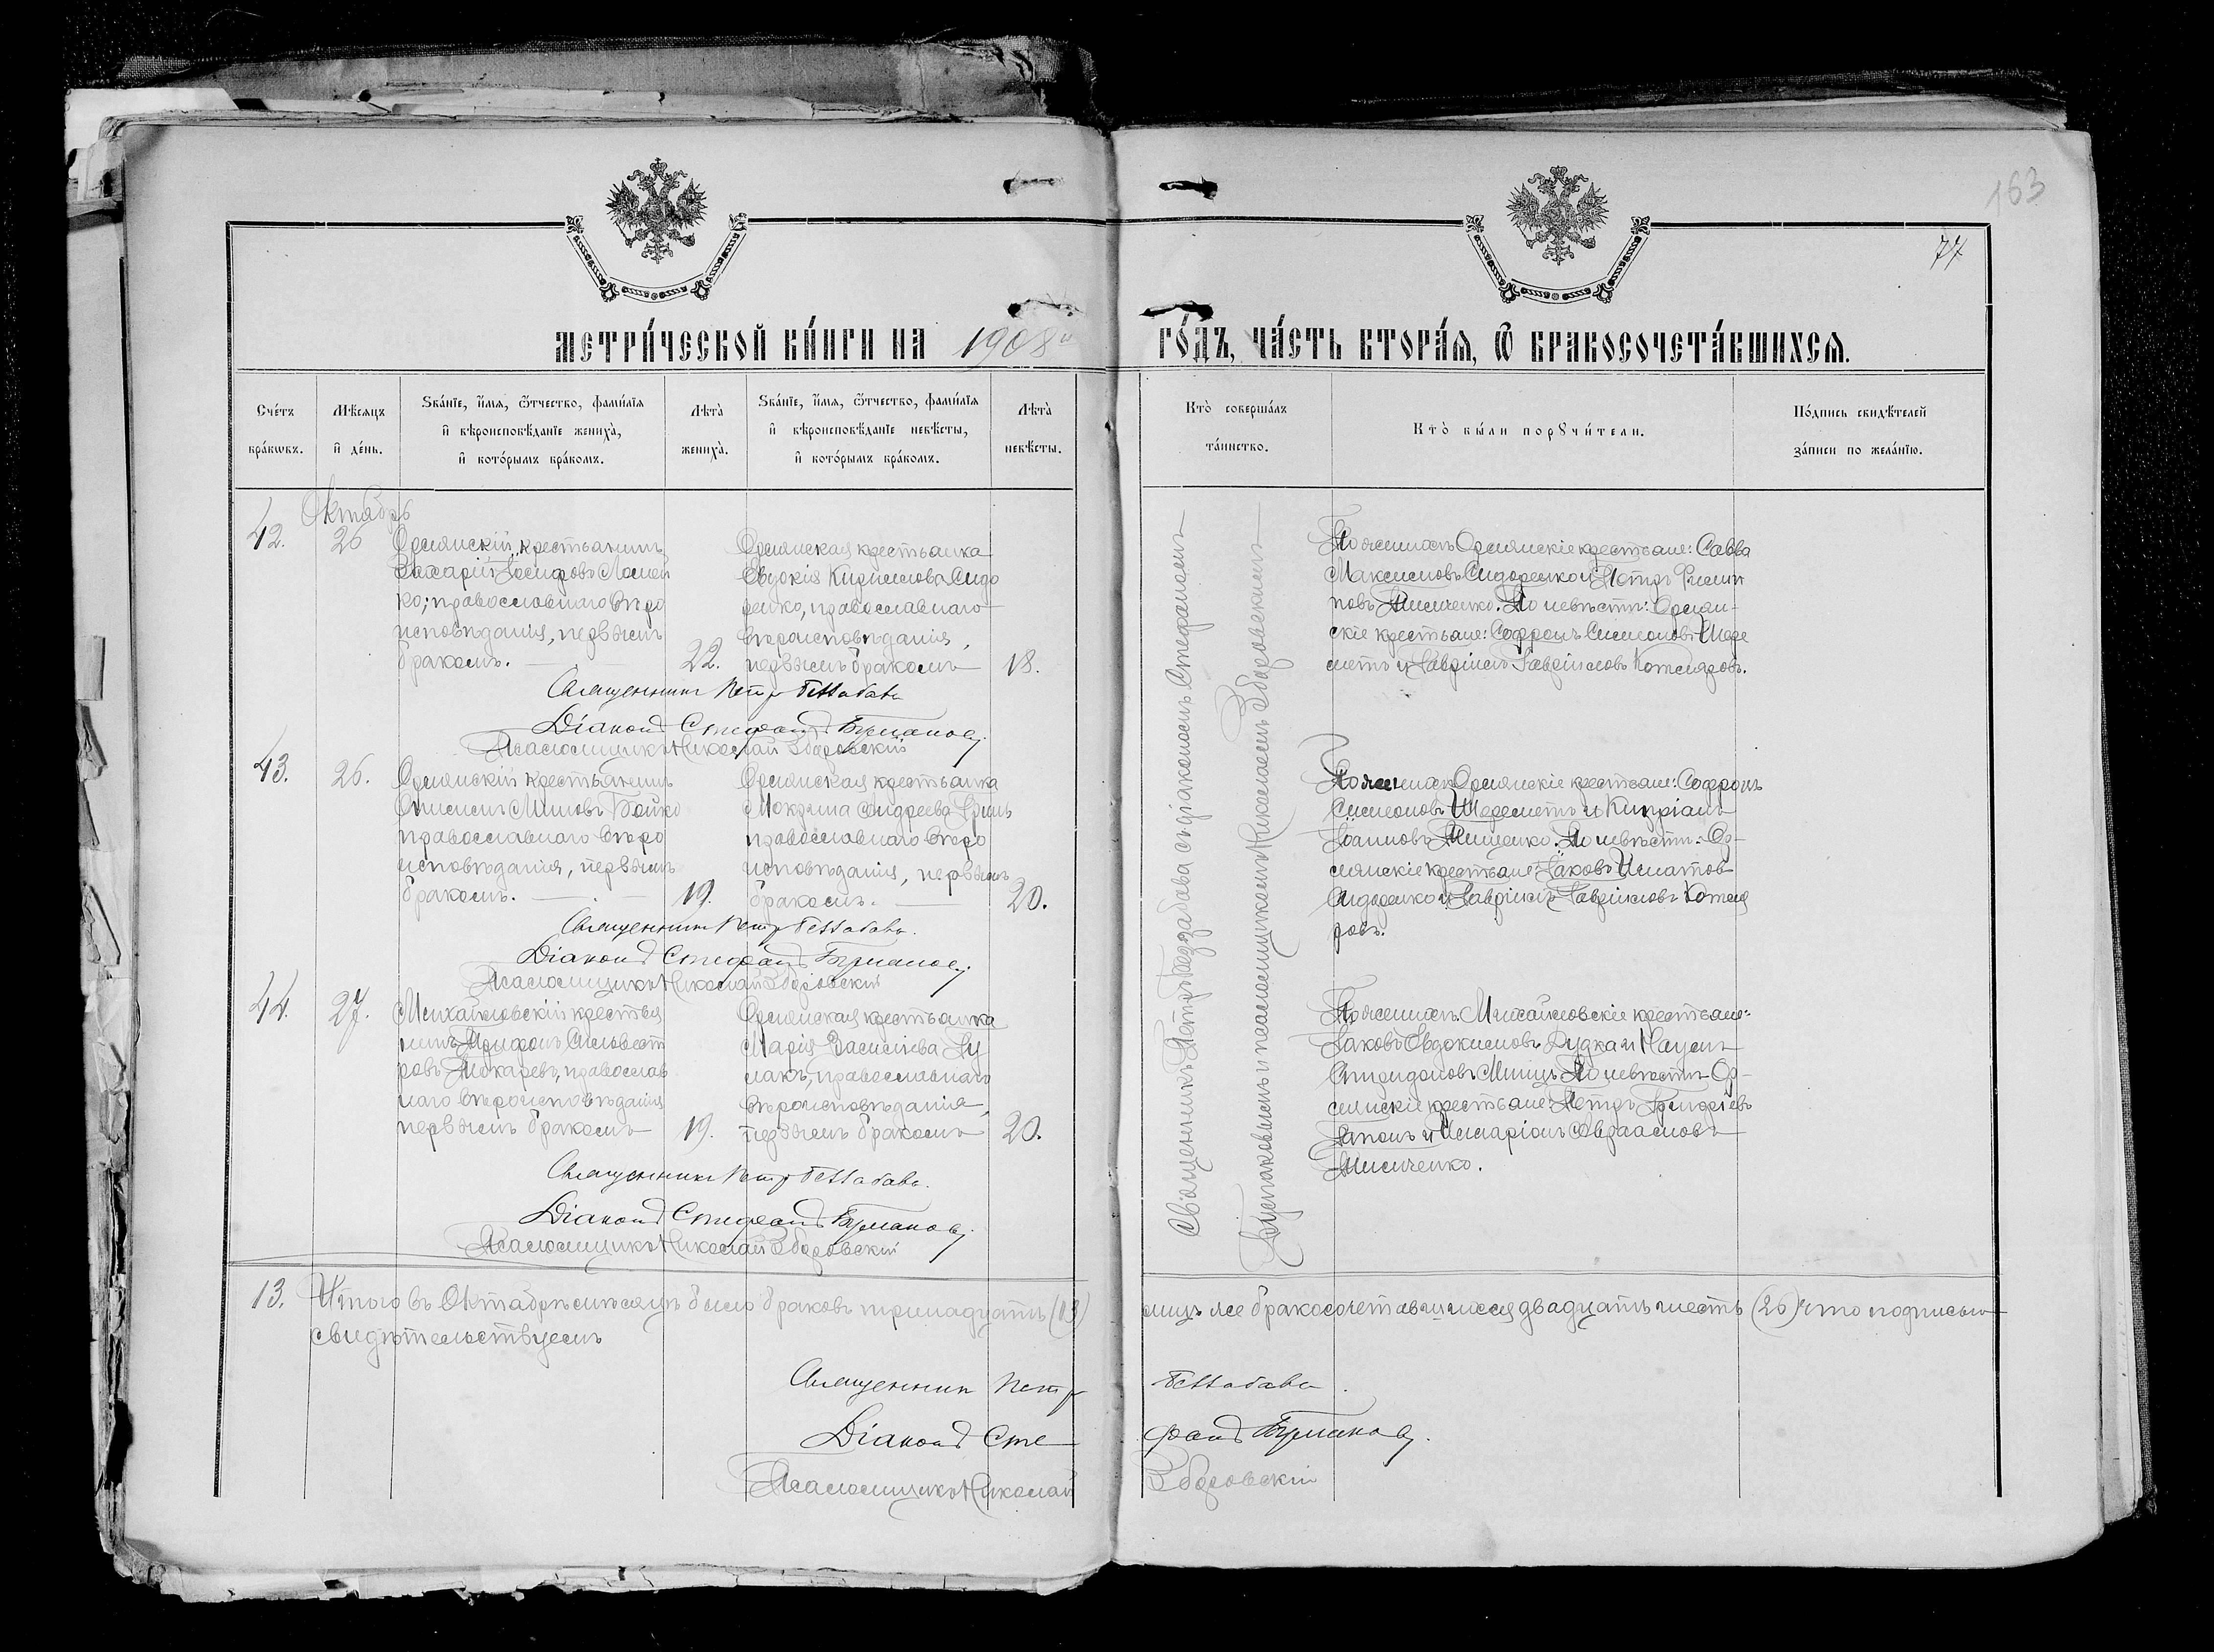 163
77
МЕТРИ́ЧЕСКОЙ КНИ́ГИ НА 1908й ГО́ДЪ, ЧА́СТЬ ВТОРА́Я, Ѽ БРАКОСОЧЕТА́ВШИХСЯ.
Сче́тъ бра́кѡвъ.
Мѣ́сяцъ и де́нь.
Ѕва́нїе, и́мя, ѻ́тчество, фами́лїя и вѣроисповѣ́данїе жениха̀, и кото́рымъ бра́комъ.
Лѣта̀ жениха̀.
Ѕва́нїе, и́мя, ѻ́тчество, фами́лїя и вѣроисповѣ́данїе невѣ́сты, и кото́рымъ бра́комъ.
Лѣта̀ невѣ́сты.
Кто̀ соверша́лъ та́инство.
Кто̀ бы́ли порꙋчи́тели.
По́дпись свидѣ́телей за́писи по жела́нїю.
Октябрь
42.
26
Орлянскій крестьянинъ
Захарій Іосифовъ
ко; православнаго вѣро
исповѣданія, первымъ
бракомъ.
22.
Орлянская крестьянка
Евдокія Кириллова Сидо
ренко, православнаго
вѣроисповѣданія,
первымъ бракомъ
18.
По женихѣ Орлянскіе крестьяне: Савва
Максимовъ Сидоренко и Петръ Филип
повъ Лисиченко. По невѣстѣ: Орлян-
скіе крестьяне: Софронъ Симеоновъ Шере
метъ и Гавріилъ Гавріиловъ Котляровъ.
Священникъ Петръ Беззабава
Діаконъ Стефанъ
Псаломщикъ Николай Зборовскій
43.
26.
Орлянскій крестьянинъ
Бойко
православнаго вѣро
исповѣданія, первымъ
бракомъ.
19.
Орлянская крестьянка
Мокрина Андреева
православнаго вѣро
исповѣданія, первымъ
бракомъ.
20.
По женихѣ Орлянскіе крестьяне: Софронъ
Симеоновъ Шереметъ и Кипріанъ
Іоанновъ Лищенко. По невѣстѣ: Ор-
лянскіе крестьяне: Іаковъ Игнатовъ
Сидоренко и Гавріилъ Гавріиловъ Котля
ровъ.
Священникъ Петръ Беззабава.
Діаконъ Стефанъ
Псаломщикъ Николай Зборовскій
44.
27.
Михайловскій крестья
нинъ Трифонъ Сильвест
ровъ Токаревъ, православ
наго вѣроисповѣданія
первымъ бракомъ
19.
Орлянская крестьянка
Марія Василіева
православнаго
вѣроисповѣданія,
первымъ бракомъ
20.
По женихѣ Михайловскіе крестьяне:
Іаковъ Евдокимовъ Дудка и Наумъ
Спиридоновъ По невѣстѣ Ор-
лянскіе крестьяне: Петръ Григоріевъ
Гапонъ и Иларіонъ Авраамовъ
Лисиченко.
Священникъ Петръ Беззабава.
Діаконъ Стефанъ
Псаломщикъ Николай Зборовскій
Священникъ Петръ Беззабава съ діакономъ Стефаномъ
и псаломщикомъ Николаемъ Зборовскимъ
13. Итого въ Октябрѣ мѣсяцѣ было браковъ тринадцать (13) лицъ же бракосочетавшихся двадцать шесть (26) что подписью
свидѣтельствуемъ
Священникъ Петръ Беззабава.
Діаконъ Стефанъ
Псаломщикъ Николай Зборовскій